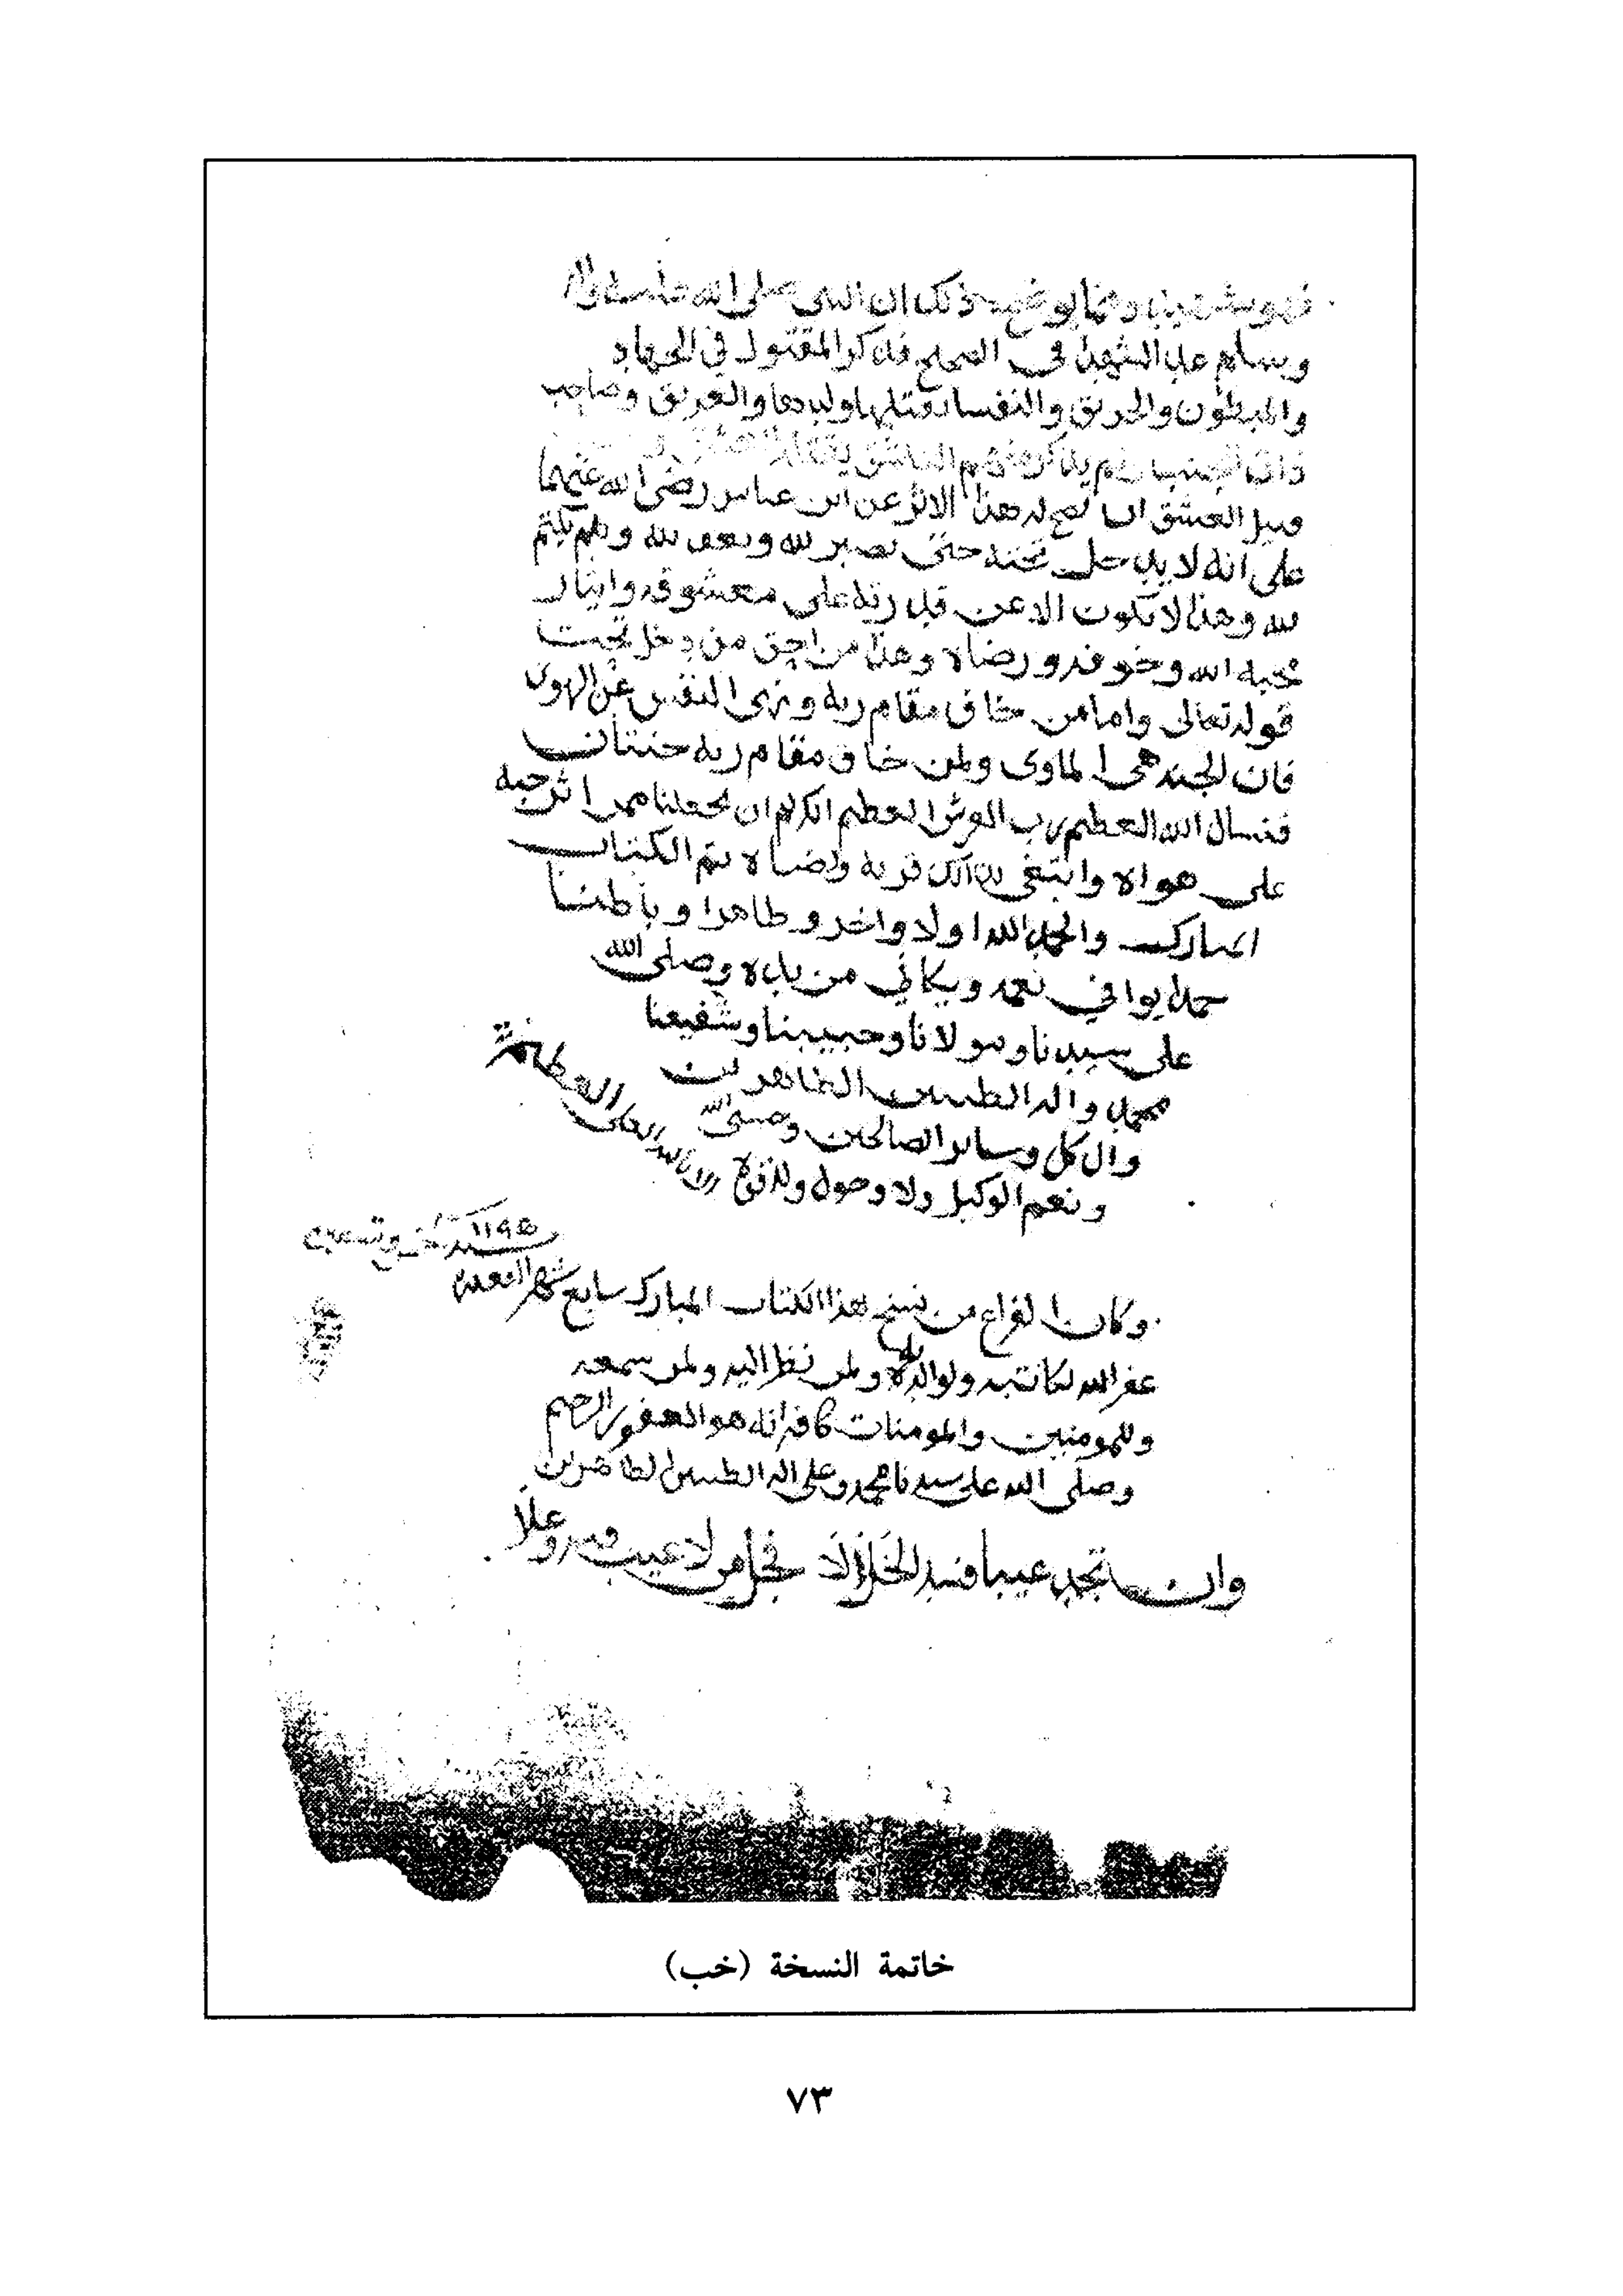 فهو شهيد ومما يوضح ذلك ان النبي صلى الله عليه واله
وسلم عد الشهدا في الصحيح فذكر المقتول في الجهاد
والمبطون والحريق والنفسا يقتلها ولدها والغريق وصاحب
ذات الجنب ولم يذكر منهم العاشق يقتله العشق
قتيل العشق ان يصح له هذا الاثر عن ابن عباس رضي الله عنهما
على انه لا يدخل تحته حتى يصبر لله ويعف لله ويكتم
لله وهذا لا يكون الا عن قدرته على معشوقه وايثار
محبة الله وخوفه ورضاه وهذا من احق من دخل تحت
قوله تعالى واما من خاف مقام ربه ونهى النفس عن الهوى
فان الجنه هي الماوى ولمن خاف مقام ربه جنتان
فنسال الله العظيم رب العرش العظيم الكريم ان يجعلنا ممن اثر حبه
على هواه وابتغى بذلك قربه ورضاه تم الكتاب
المبارك والحمد لله اولا واخر وظاهرا وباطنا
حمدا يوافي نعمه ويكافي من يده وصلى الله
على سيدنا ومولانا وحبيبنا وشفيعنا
محمد واله الطيبين الطاهرين
وال كل وساير الصالحين وحسبي الله
ونعم الوكيل ولا حول ولا قوة الا بالله العلي العظيم
وكان الفراغ من نسخ هذا الكتاب المبارك سابع شهر القعده
سنة ١١٩٥ خمس وتسعين
غفر الله لكاتبه ولوالديه ولمن نظر اليه ولمن سمعه
وللمومنين والمومنات كافه انه هو الغفور الرحيم
وصلى الله على سيدنا محمد وعلى اله الطيبين الطاهرين
وان تجد عيبا فسد الخللا فجل من لا عيب فيه وعلا
خاتمة النسخة (خب)
٧٣